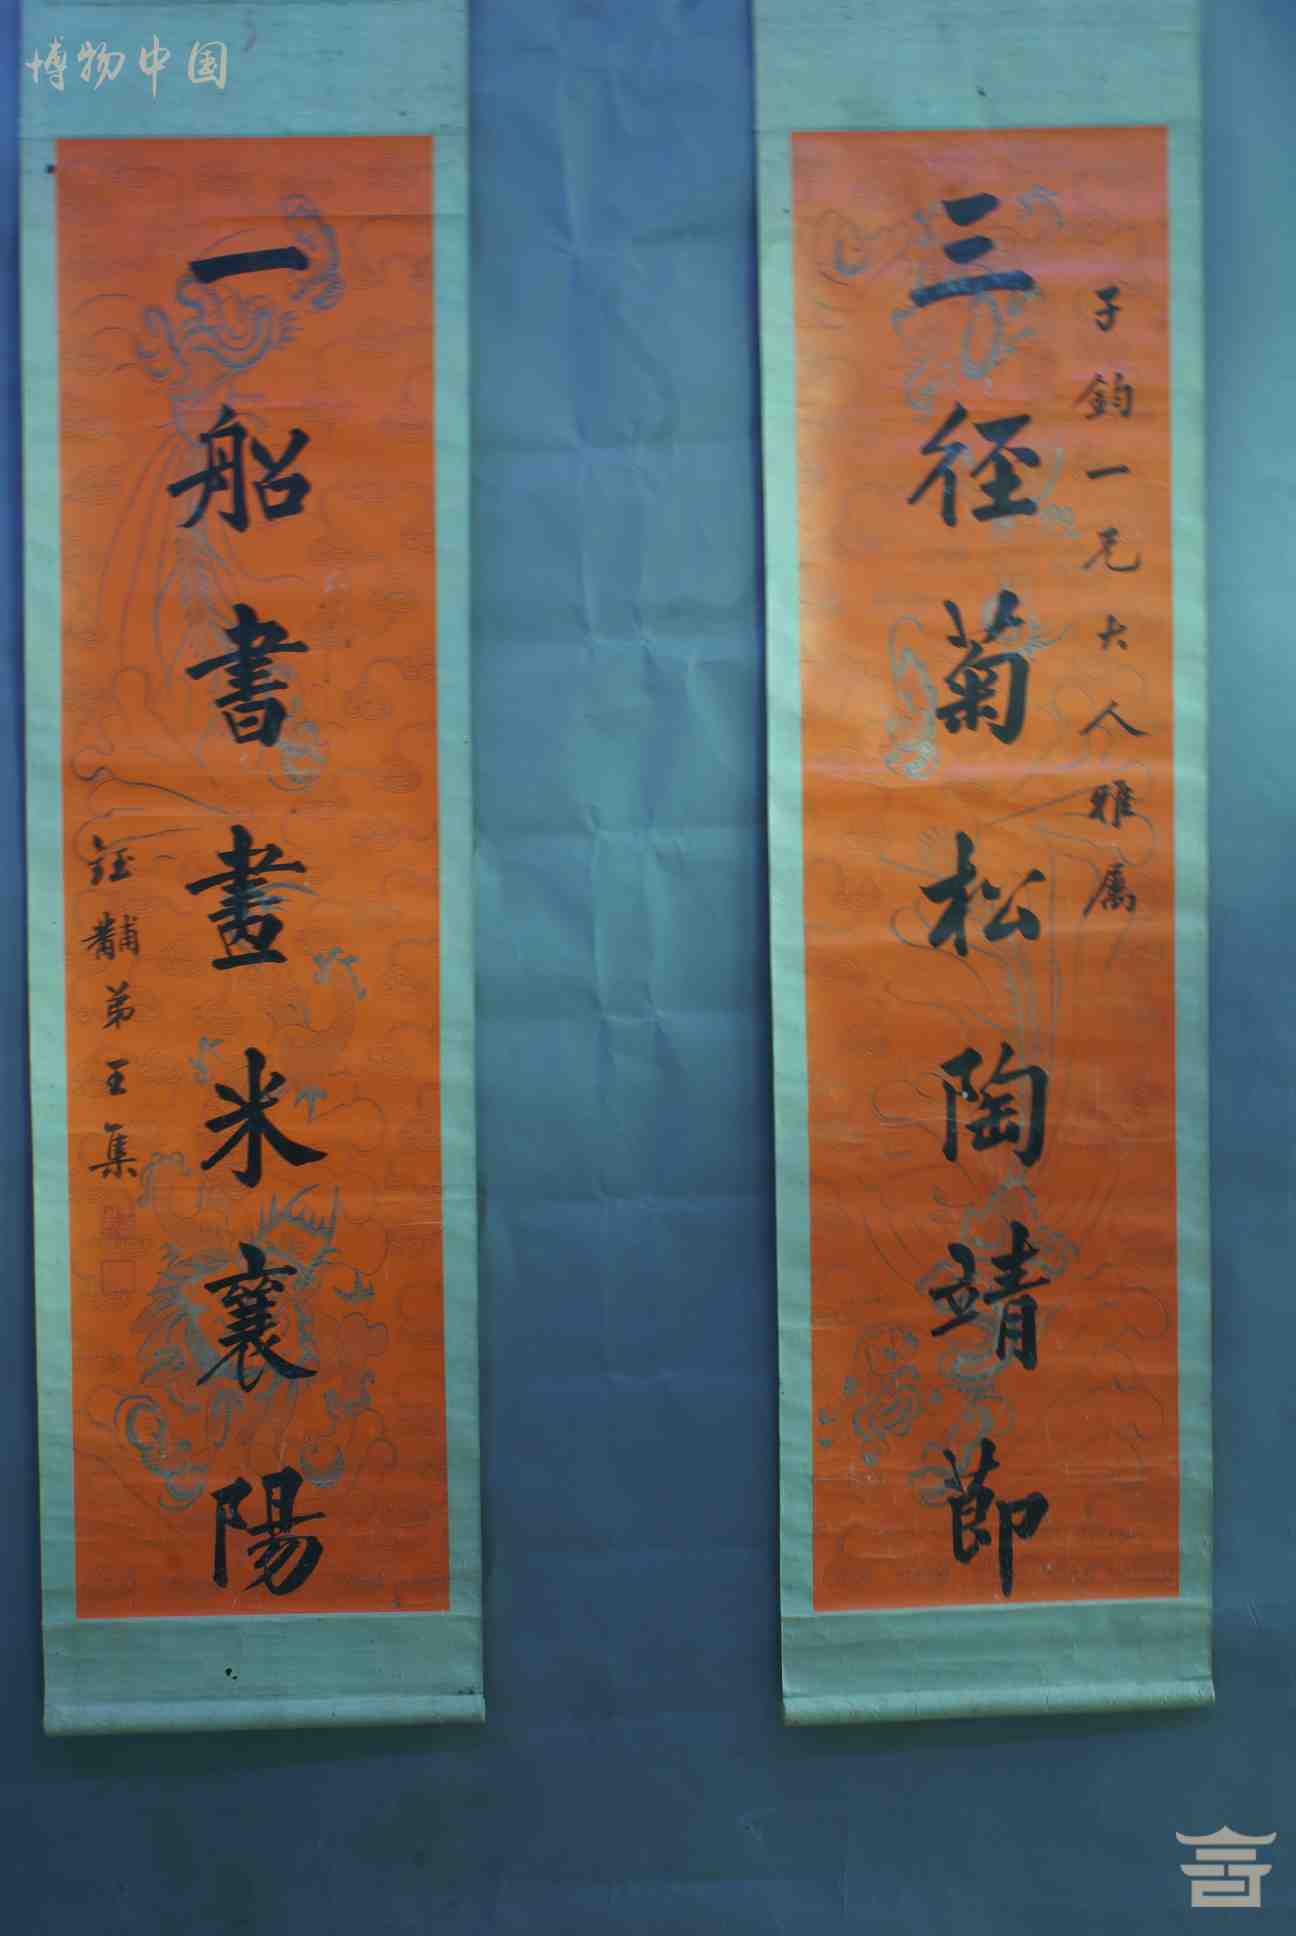 博物中国
子鈞一兄大人雅属
三径菊松陶靖節
一船書畫米襄陽
弟王集